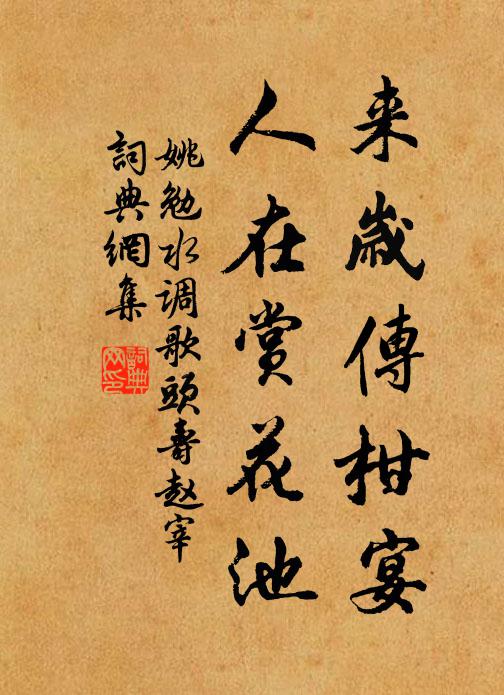 来歲傳柑宴
人在賞花池
姚勉水调歌頭壽赵宰
詞典網集
詞典
网印